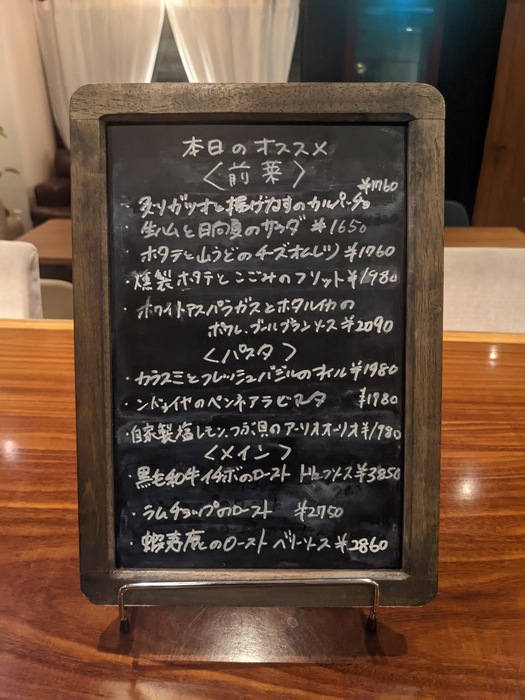 本日のオススメ
〈前菜〉
・炙りガツオと揚げなすのカルパーチョ ¥1760
・生ハムと日向夏のサラダ ¥1650
・ホタテと山うどのチーズオムレツ ¥1760
・燻製ホタテとこごみのフリット ¥1980
・ホワイトアスパラガスとホタルイカの
ポワレ、ブールブランソース ¥2090
〈パスタ〉
・カラスミとフレッシュバジルのオイル ¥1980
・ンドゥイヤのペンネアラビアータ ¥1980
・自家製塩レモン、つぶ貝のアーリオオーリオ ¥1980
〈メイン〉
・黒毛和牛イチボのロースト トリュフソース ¥3850
・ラムチョップのロースト ¥2750
・蝦夷鹿のロースト ベリーソース ¥2860